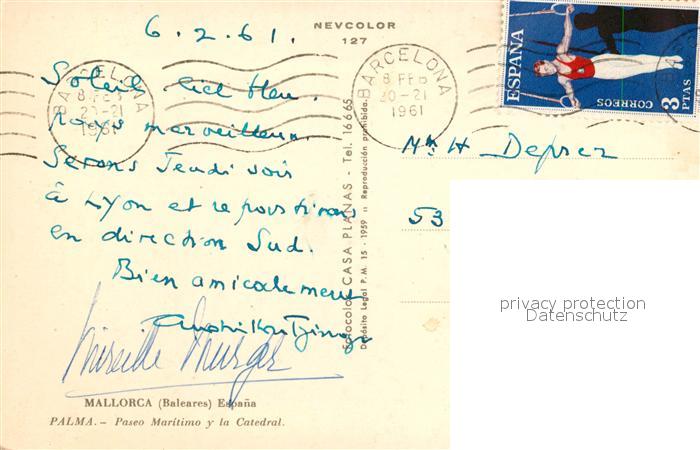 NEVCOLOR
127
6.2.61.
Soleil ciel bleu.
Pays merveilleux.
Serons Jeudi soir
à Lyon et repartirons
en direction Sud.
Bien amicalement
Mireille
MALLORCA (Baleares) España
PALMA.- Paseo Marítimo y la Catedral.
Fotocolor CASA PLANAS - Tel. 16665
Depósito Legal P.M. 15 - 1959 :: Reproducción prohibida.
BARCELONA
8 FEB
20-21
1961
BARCELONA
8 FEB
20-21
1961
ESPAÑA
CORREOS
3 PTAS
H Deprez
53
privacy protection
Datenschutz